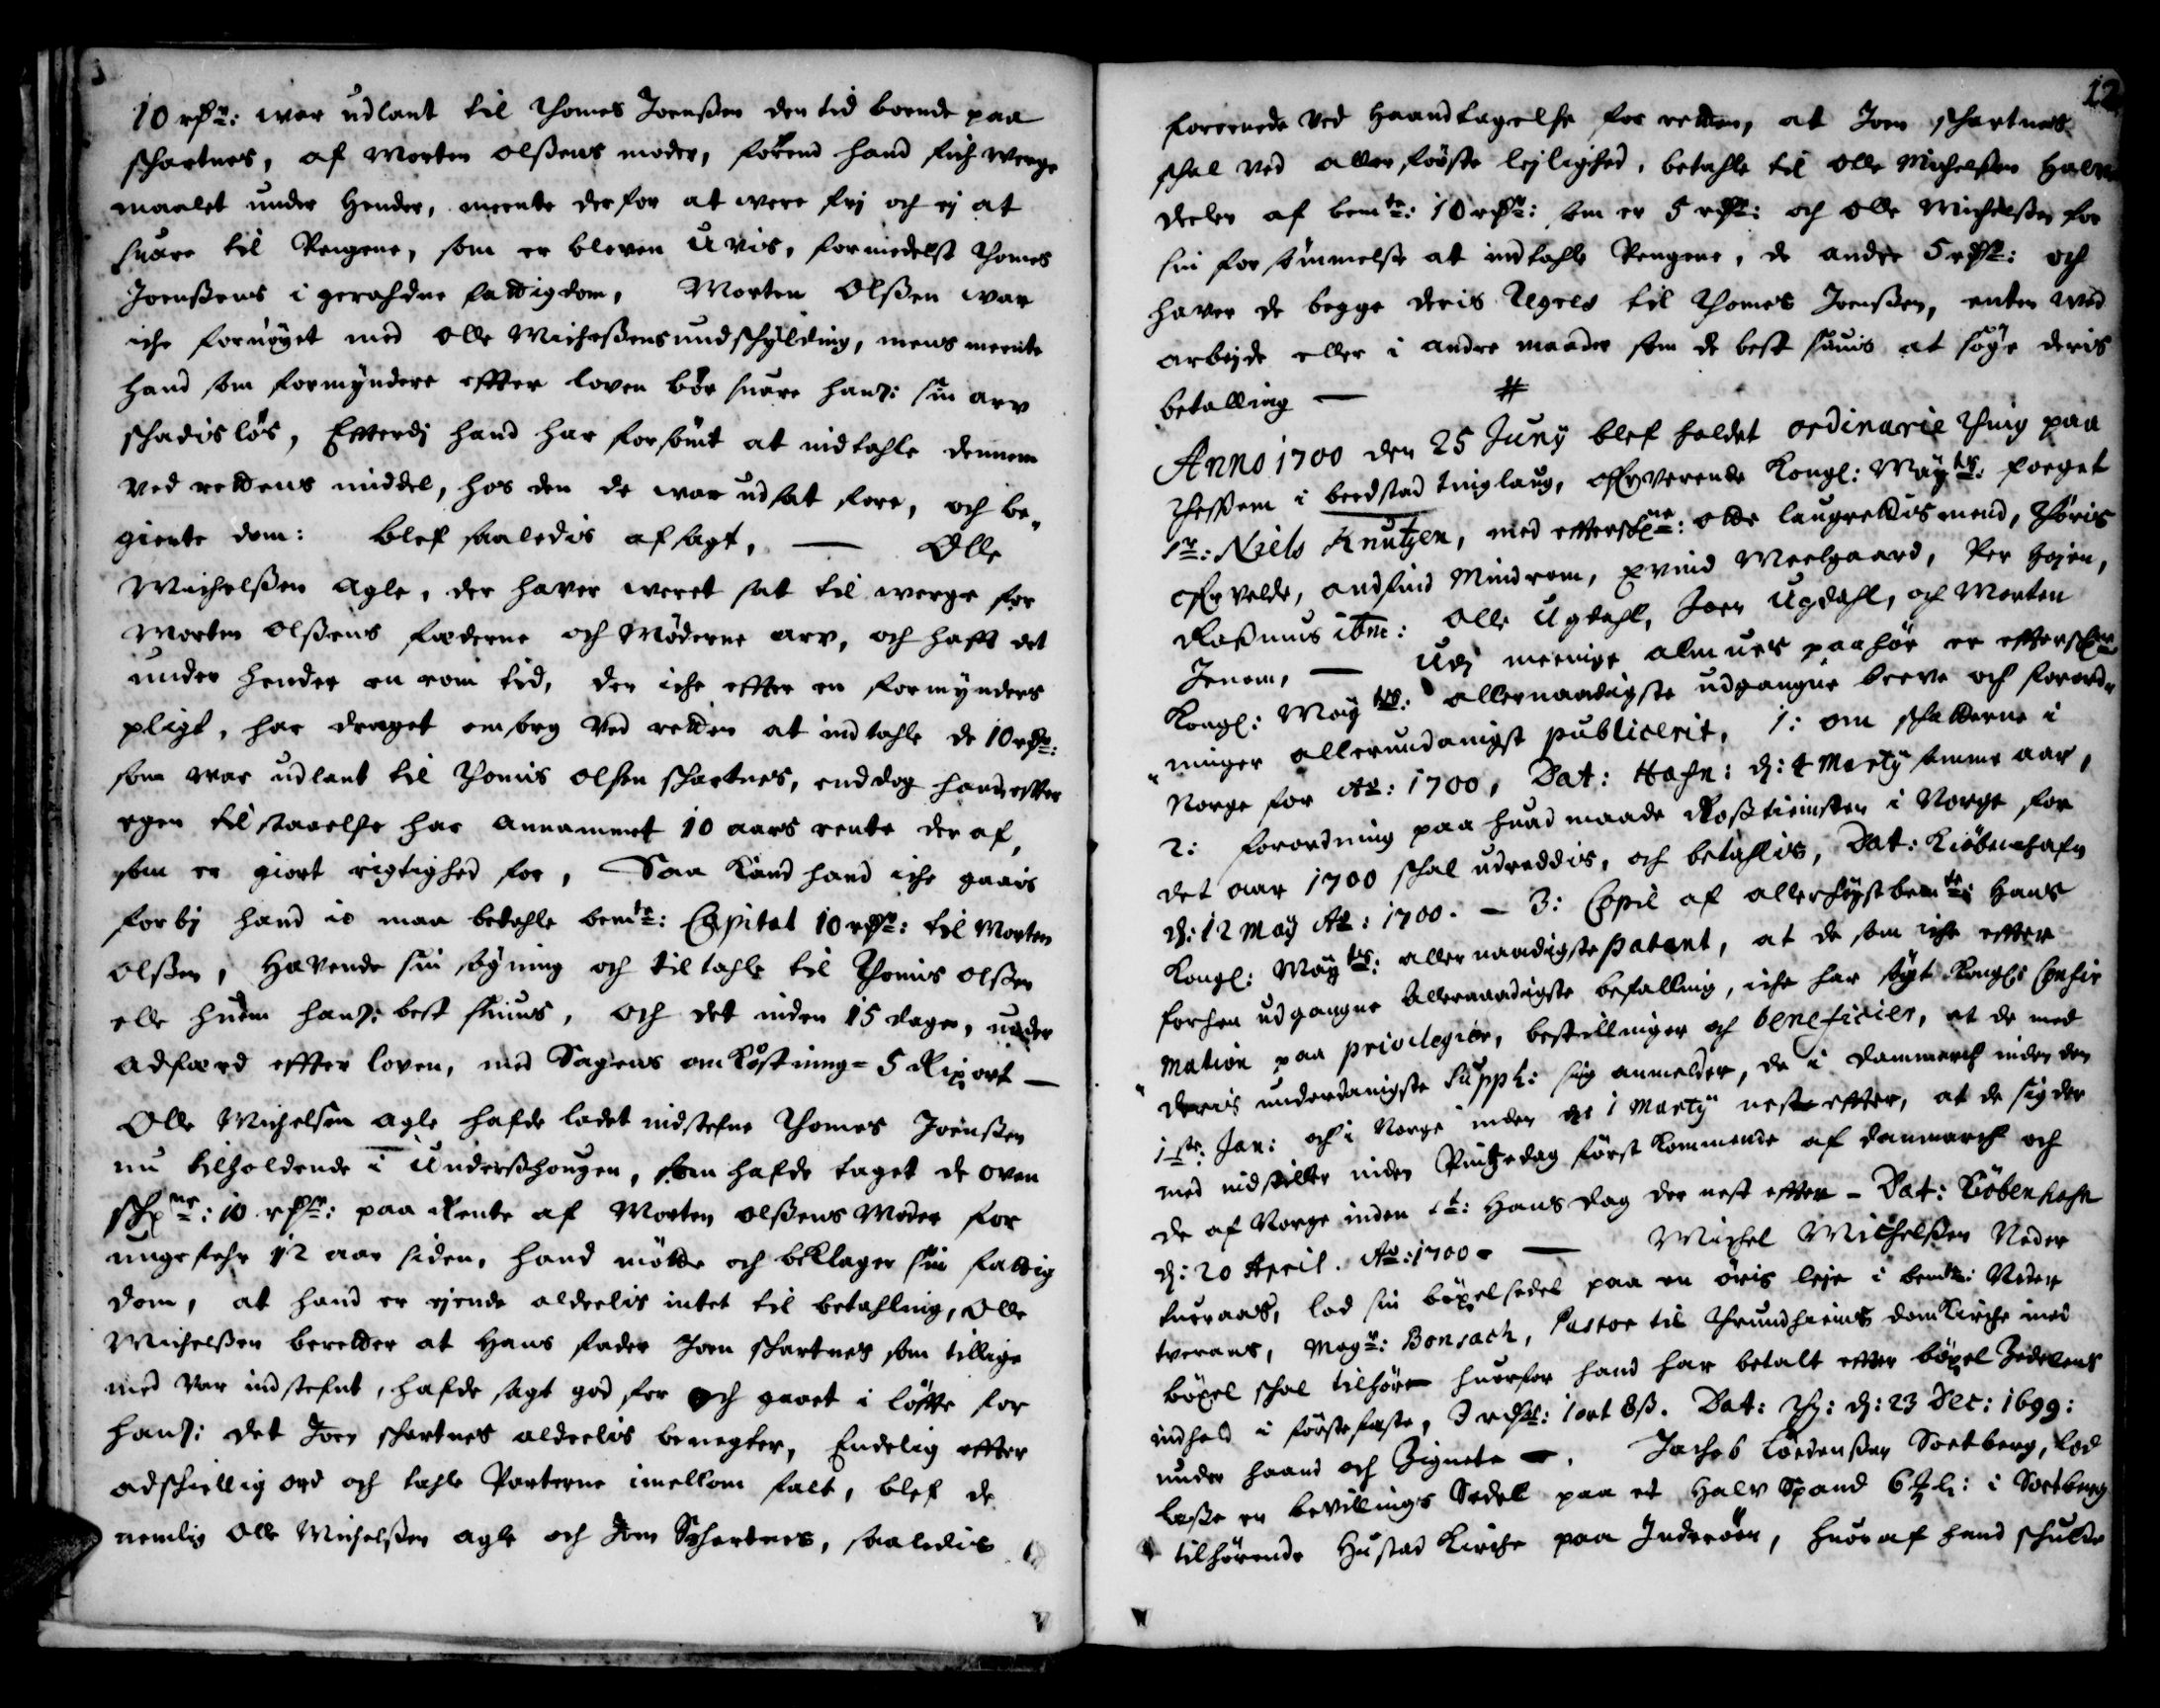 10 rdr: war udlant til Thomes Joenßen den tid boende paa
schartnes, af Morten olßens moder, førend hand fich werge
maalet under Hender, meente derfor at were fri och ej at
suare til Pengene, som er bleven Uvis, formedelst Thomes
Joenßens i gerahdne fattigdom, Morten Olßen war
iche fornøyet med olle Michelßens undschylding, mens meente
hand som formyndere effter loven bør suare hans: sin arv
schadisløs, Efterdj hand har forsømt at indtahle dennem
ved rettens middel, hos den de war udsat fore, och be-
giente dom: blef saaledis afsagt, — Olle
Michelßen Agle, der haver weret sat til werge for
Morten olßens fæderne och Møderne arv, och hafft det
under hender en rom tid, der iche effter en formynders
pligt, har draget omsorg ved retten at indtahle de 10 rdr:
som war udlant til Thomis olsen schartnes, enddog hand effter
egen tilstaaelse har annammet 10 aars rente der af,
som er giort rigtighed for, Saa Kand hand iche gaais
forbj hand io maa betahle bemte: Capital 10 rdr: til Morten
olßen, Havende sin søgning och tiltahle til Thomis olßen
elle huem hans: best siuns, och det inden 15 dage, under
adfærd effter loven, med Sagens omkøstning = 5 Rixort —
Olle Michelsen Agle hafde ladet indstefne Thomes Joenßen
nu tilholdende i Underßhougen, som hafde taget de oven
schrne: 10 rdr: paa Rente af Morten olßens Moder for
ungefehr 12 aar siden, hand møtte och beklager sin fattig
dom, at hand er ejende aldeelis intet til betahling, Olle
Michelßen beretter at Hans fader Joen schartnes som tillige
med var indstefnt, hafde sagt god for och gaaet i løffte for
hans: det Joen schartnes aldeelis benegter, Endelig effter
adschellig ord och tahle Parterne imellom falt, blef de
nemlig Olle Michelßen Agle och Joen Schartnes, saaledis
12
foreenede ved Haandtagelse for retten, at Joen schartnes
schal ved aller første lejlighed, betahle til olle Michelßen Halve
deelen af bemte: 10 rdr: som er 5 rdr: och olle Michelßen for
sin forsømmelse at indtahle Pengene, de andre 5 rdr: och
haver de begge deris Regres til Thomes Joenßen, enten wed
arbejde eller i andre maader som de best siunis at søge deris
betalling —
Anno 1700 den 25 Junij blef holdet ordinarie Thing paa
i beedstad tinglaug, offververende Kongl: Maytts: foeget
Sr: Niels Knutzen, med effterschne: otte laugrettismend,
ofervolde, Mindrom, Meelgaard, Per Hojen,
Raßmus ibm: Olle Ugdahl, Joen Ugdahl, och Morten
Jenem, — Udj meenige almues paahør er effterschne
Kongl: Maytts: allernaadigste udgangne breve och forord-
ninger allerundanigst publicerit, 1: om schatterne i
Norge for Ao: 1700, Dat: Hafn: d: 4 Martij samme aar,
2: forordning paa huad maade Roßtienisten i Norge for
det aar 1700 schal udreddis, och betahlis, Dat: Kiøbenhafn
d: 12 Maj Ao: 1700. — 3: Copie af allerhøystbemte: Hans
Kongl: Maytts: allernaadigste patent, at de som iche effter
forhen udgangne Allernaadigste befalling, iche har søgt Kongl: Confir
mation paa privilegier, bestillninger och beneficier, at de med
deris underdanigste Suppl: sig anmelder, de i Danmarch inden den
1ste: Jan: och i Norge inden den 1 Martij nest effter, at de sig der
med indstiller inden Pintzedag først kommende af Danmarch och
de af Norge inden St: Hans dag der nest effter – Dat: Kiøbenhafn
d: 20 April. Ao: 1700 – — Michel Michelßen Neder
tueraas, lod sin bøxelsedel paa en øris leje i bemte: Neder
tveraas, Magr: Bonsach, Pastor til Thrundheims domkirche med
bøxel schal tilhøre huorfor hand har betalt effter bøxel Zedelens
indhold i førstefæste, 3 rdr: 1 ort 8 ß. Dat: Th: d: 23 Dec: 1699:
under Haand och Zignete —. Jachob Soetberg, lod
leße en bevillings Sedel paa et Halv Spand i Soetberg
tilhørende Hustad Kirche paa Inderøen, huoraf hand schulde